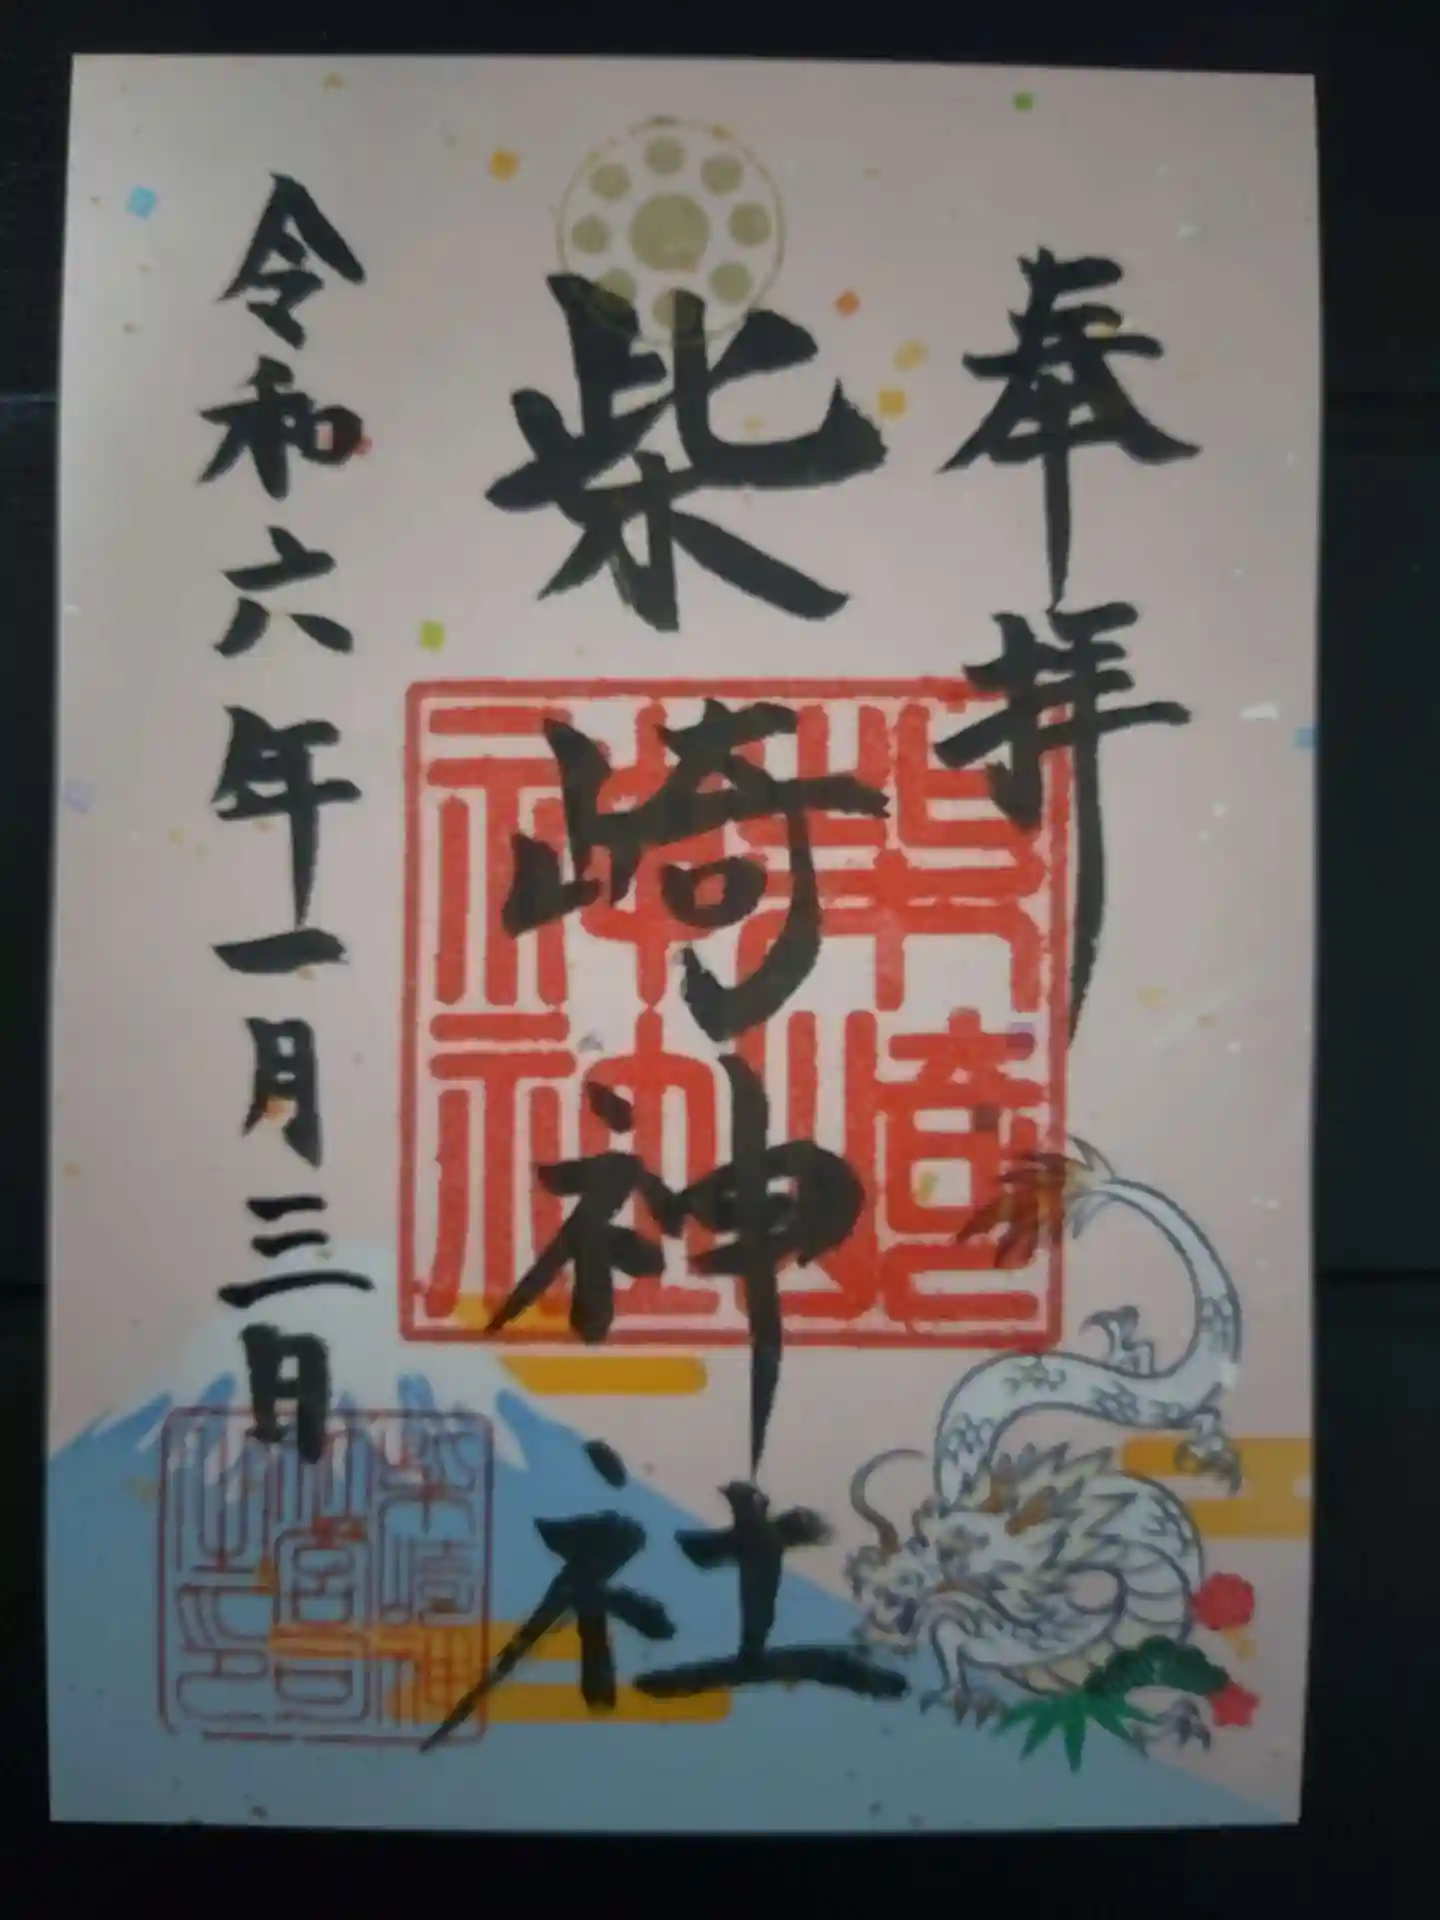 奉拝
柴崎神社
令和六年一月三日
柴崎神社
柴崎神社宮司之印